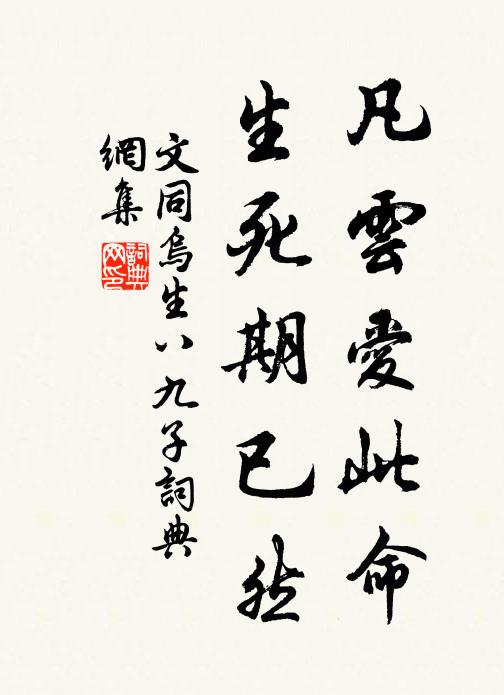 凡雲愛此命
生死期已然
文同烏生八九子詞典
網集
詞典
网印